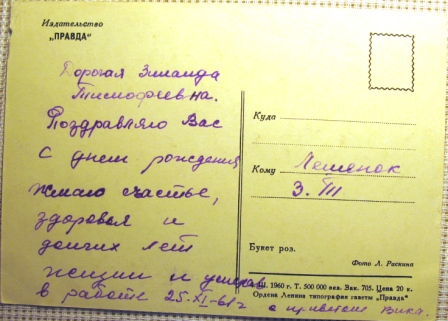 Издательство
„ПРАВДА"
Дорогая Зинаида
Тимофеевна.
Поздравляю Вас
с днем рождения
Желаю счастье,
здоровья и
долгих лет
жизни и успехов
в работе 25-XI-61г с приветом Вика.
Куда
Кому Лешенок
З. Т
Букет роз.
Фото Л. Раскина
1960 г. Т. 500 000 экз. Зак. 705. Цена 20 к.
Ордена Ленина типография газеты „Правда"